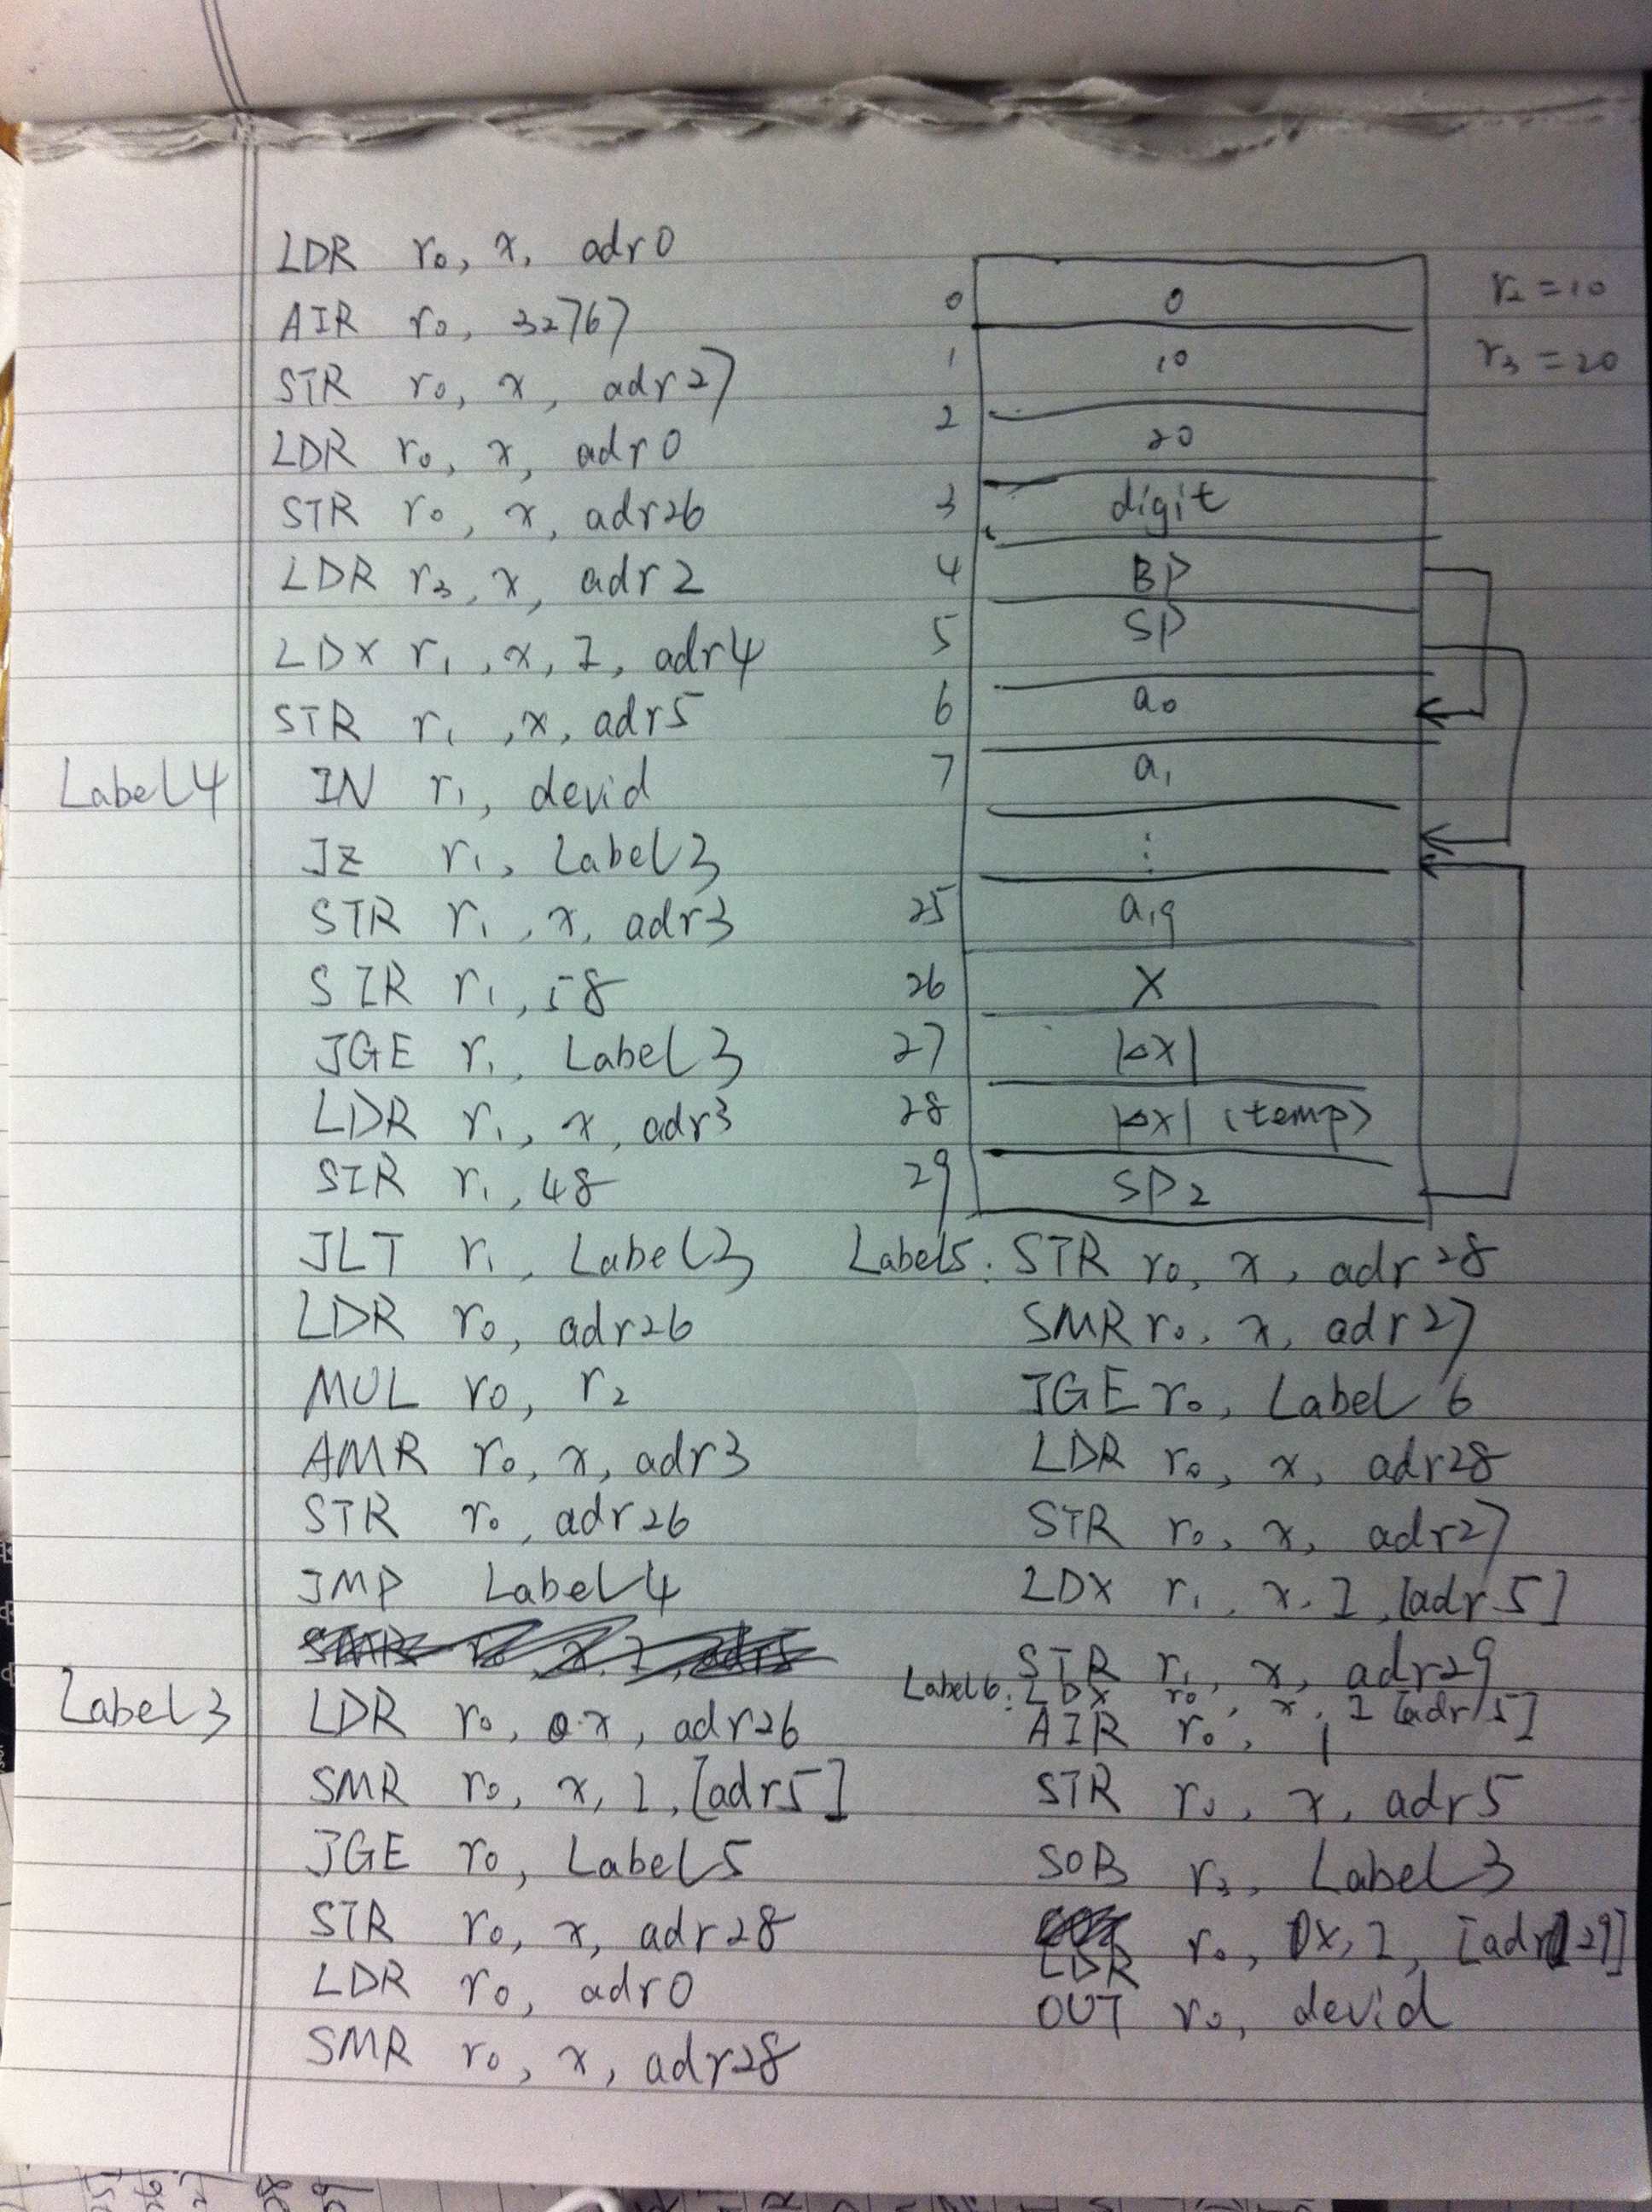 LDR r0, x, adr0
AIR r0, 32767
STR r0, x, adr27
LDR r0, x, adr0
STR r0, x, adr26
LDR r3, x, adr2
LDX r1, x, I, adr4
STR r1, x, adr5
Label4 IN r1, devid
JZ r1, Label3
STR r1, x, adr3
SIR r1, 58
JGE r1, Label3
LDR r1, x, adr3
SIR r1, 48
JLT r1, Label3
LDR r0, adr26
MUL r0, r2
AMR r0, x, adr3
STR r0, adr26
JMP Label4
Label3 LDR r0, x, adr26
SMR r0, x, I, [adr5]
JGE r0, Label5
STR r0, x, adr28
LDR r0, adr0
SMR r0, x, adr28
0 0
1 10
2 20
3 digit
4 BP
5 SP
6 a0
7 a1
:
25 a19
26 X
27 |△X|
28 |△X| (temp)
29 SP2
r2 = 10
r3 = 20
Label5: STR r0, x, adr28
SMR r0, x, adr27
JGE r0, Label6
LDR r0, x, adr28
STR r0, x, adr27
LDX r1, x, I, [adr5]
STR r1, x, adr29
Label6: LDX r0, x, I [adr5]
AIR r0, 1
STR r0, x, adr5
SOB r3, Label3
LDR r0, x, I, [adr29]
OUT r0, devid